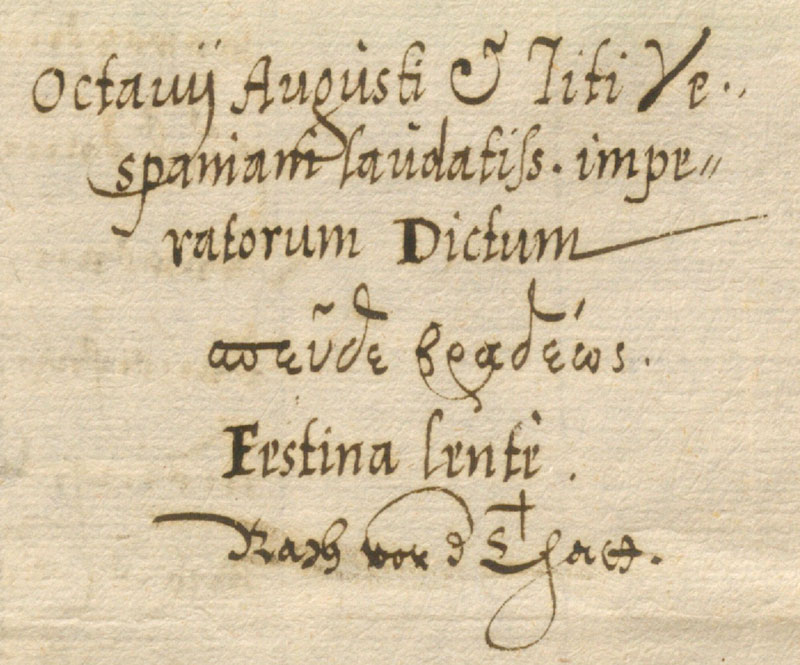 Octauij Augusti & Titi Ve..
spaniani laudatiss. impe„
ratorum Dictum
σπεῦδε βραδέως.
Festina lentè.
Rath vor d Thatt.